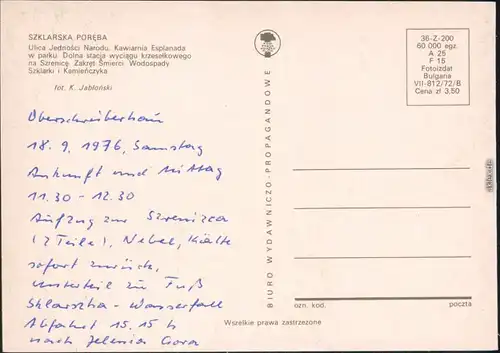 SZKLARSKA PORĘBA
Ulica Jedności Narodu. Kawiarnia Esplanada
w parku. Dolna stacja wyciągu krzesełkowego
na Szrenicę. Zakręt Śmierci. Wodospady
Szklarki i Kamieńczyka
fot. K. Jabłoński
Oberschreiberhau
18. 9. 1976, Samstag
Ankunft und Mittag
11.30 - 12.30
Aufzug zur Szrenica
(2 Teile), Nebel, Kälte
sofort zurück,
Unterteil zu Fuß
Sklarszka - Wasserfall
Abfahrt 15.15 h
nach Jelenia Gora
BIURO WYDAWNICZO-PROPAGANDOWE
36-Z-200
60 000 egz.
A 25
F 15
Fotoizdat
Bulgaria
VII-812/72/B
Cena zł 3,50
ozn. kod.
poczta
Wszelkie prawa zastrzeżone